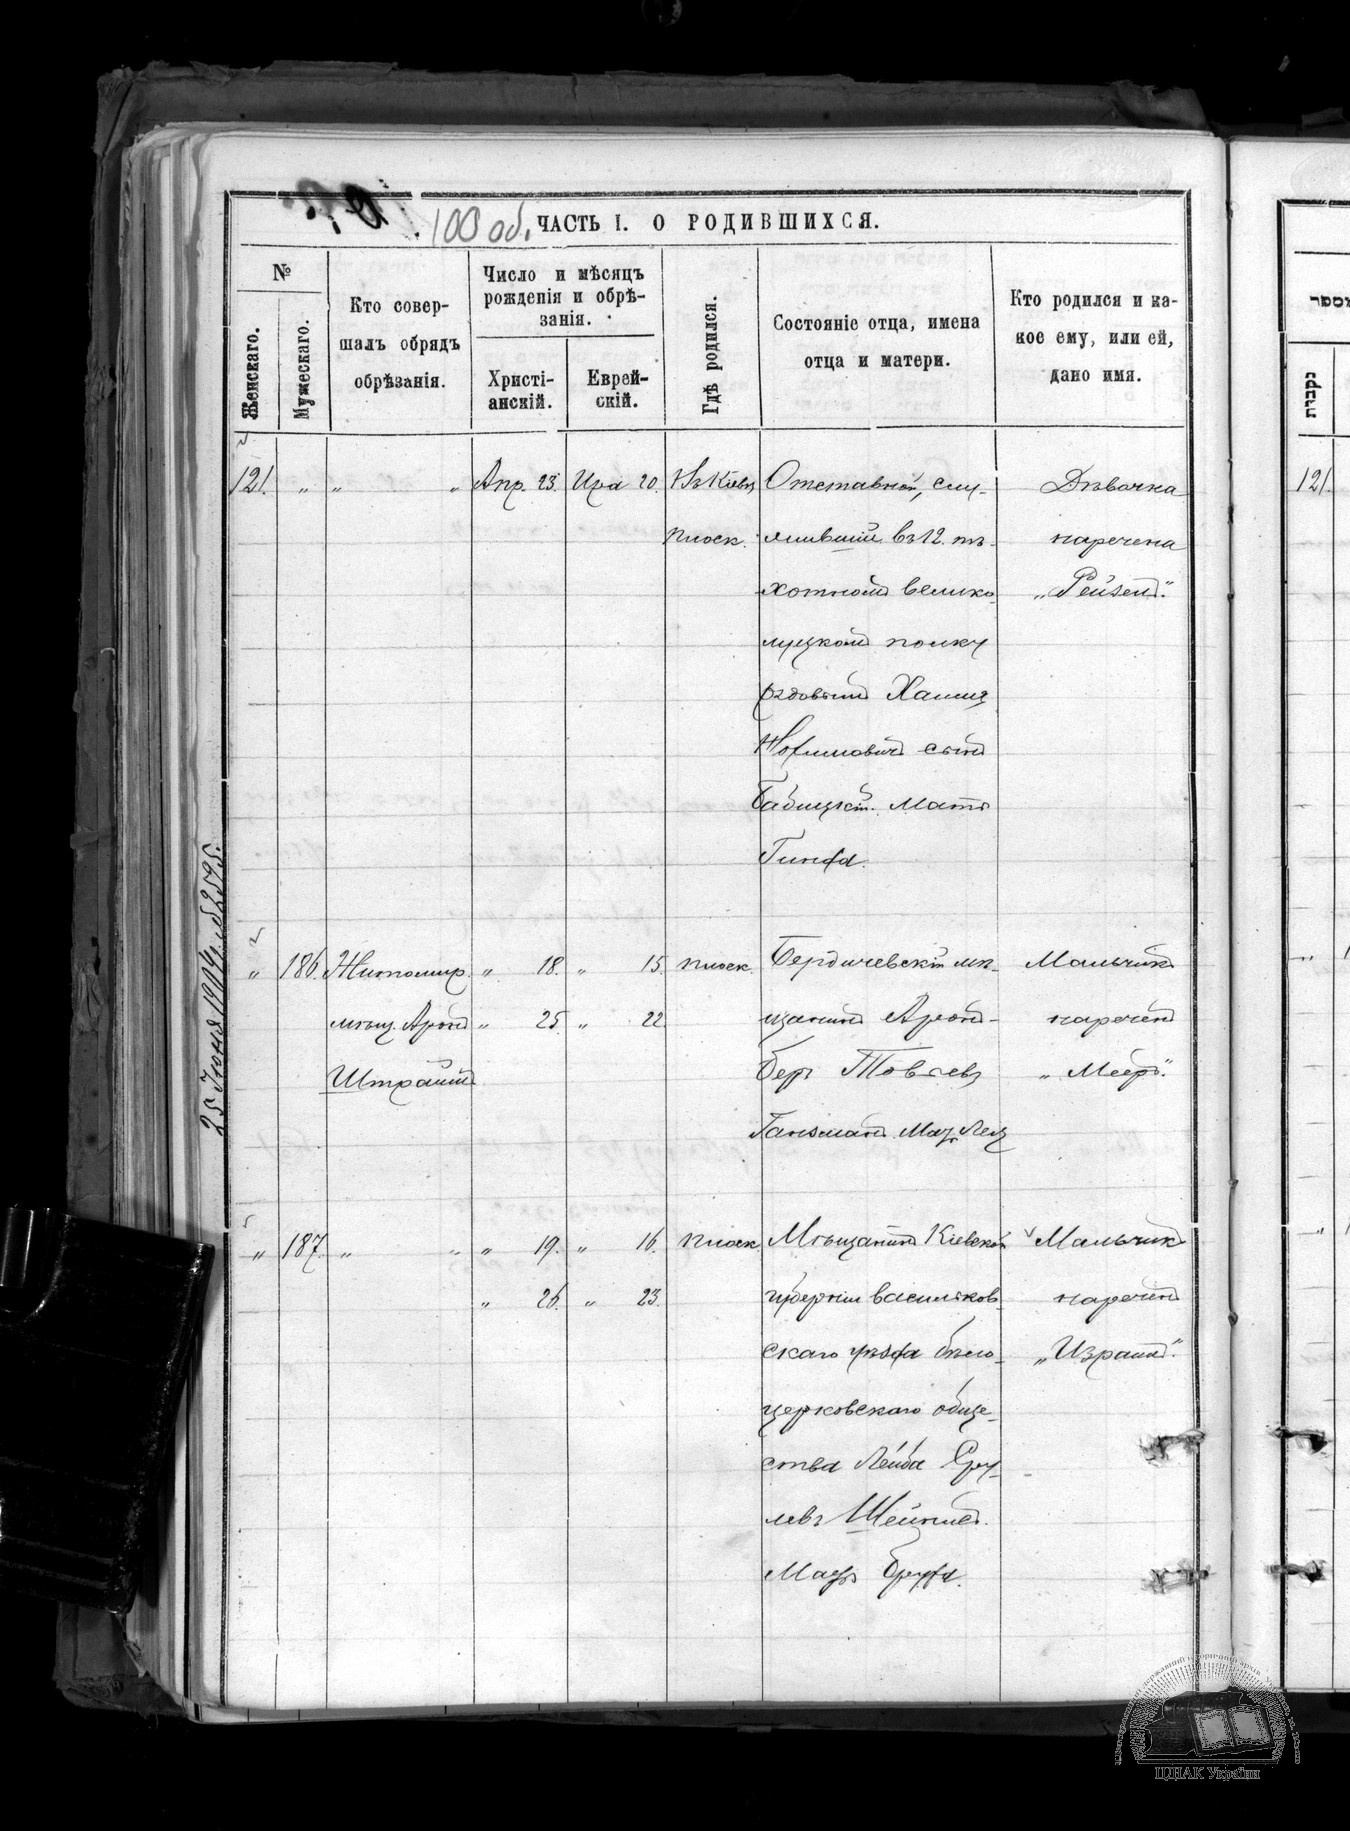 100 об.
ЧАСТЬ I. О РОДИВШИХСЯ.
№
Женскаго.
Мужескаго.
Кто совер-
шалъ обрядъ
обрѣзанія.
Число и мѣсяцъ
рожденія и обрѣ-
занія.
Христі-
анскій.
Еврей-
скій.
Гдѣ родился.
Состояніе отца, имена
отца и матери.
Кто родился и ка-
кое ему, или ей,
дано имя.
121. „ „ „ Апр. 23. Ира 20. Въ Кіевѣ
плоск.
Отставной, слу-
жившій въ 12 пѣ-
хотномъ велико-
луцкомъ полку
рядовый Хаимъ
сынъ
Бабицкій. Мать
Гинда.
Дѣвочка
наречена
„Рейзей".
25 Іюня 1914 г. № 2595.
„ 186. Житомир.
мѣщ. Аронъ
Штраймъ
„ 18. „ 15. плоск.
„ 25. „ 22.
Бердичевскій мѣ-
щанинъ Аронъ-
Беръ Товіевъ
Ганзманъ. Мат. Лея
Мальчикъ
нареченъ
„Мееръ".
„ 187. „ „ „ 19. „ 16. плоск.
„ 26. „ 23.
Мѣщанинъ Кіевской
губерніи василѣков-
скаго уѣзда бѣло-
церковскаго обще-
ства Лейба Сру-
левъ Шейнисъ.
Мать Бруха.
Мальчикъ
нареченъ
„Израиль".
מספר
נקבות
121.
ЦДІАК України